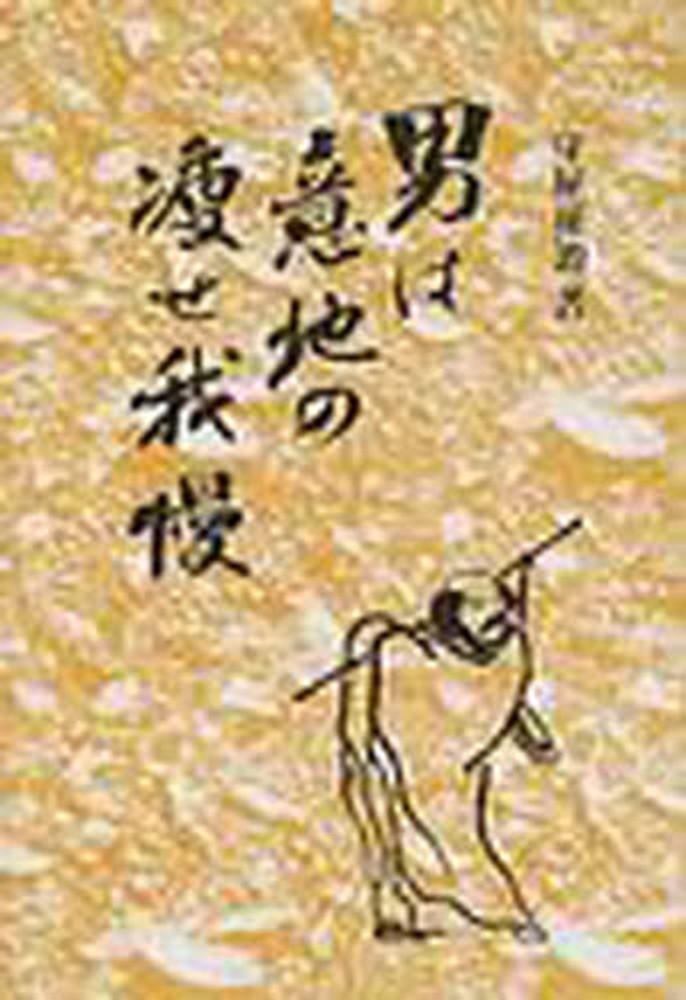 男は
意地の
瘦せ我慢